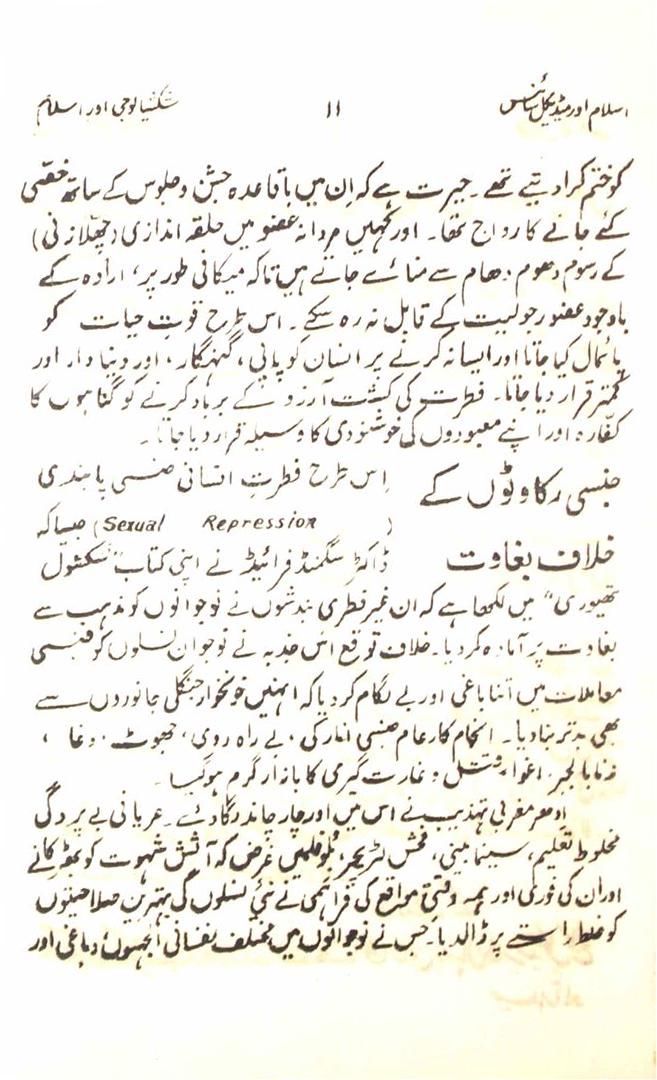 اسلام اور میڈیکل سائنس ۱۱ ٹکنیالوجی اور اسلام
کو ختم کرا دیتے تھے۔ حیرت ہے کہ ان میں باقاعدہ جشن و جلوس کے ساتھ خصّی
کئے جانے کا رواج تھا۔ اور کہیں مردانہ عضو میں حلقہ اندازی (چھلّا زنی)
کے رسوم دھوم دھام سے منائے جاتے ہیں تاکہ میکانی طور پر، ارادہ کے
باوجود عضو رجولیت کے قابل نہ رہ سکے۔ اس طرح قوتِ حیات کو
پائمال کیا جاتا اور ایسا نہ کرنے پر انسان کو پاپی، گنہگار، اور دنیا دار اور
کمتر قرار دیا جاتا۔ فطرت کی کشت آرزو کے برباد کرنے کو گناہوں کا
کفّارہ اور اپنے معبودوں کی خوشنودی کا وسیلہ قرار دیا جاتا۔
جنسی رکاوٹوں کے اس طرح فطرتِ انسانی جنسی پابندی
(Sexual Repression) جیسا کہ
خلاف بغاوت ڈاکٹر سگمنڈ فرائیڈ نے اپنی کتاب "سکشول
تھیوری" میں لکھا ہے کہ ان غیر فطری بندشوں نے نوجوانوں کو مذہب سے
بغاوت پر آمادہ کر دیا۔ خلاف توقع اس جذبہ نے نوجوان نسلوں کو جنسی
معاملات میں اتنا باغی اور بے لگام کر دیا کہ انہیں خونخوار جنگلی جانوروں سے
بھی بدتر بنا دیا۔ انجام کار عام جنسی انارکی، بے راہ روی، جھوٹ، دغا،
زنا بالجبر، اغوا، قتل و غارت گیری کا بازار گرم ہو گیا۔
اِدھر مغربی تہذیب نے اس میں اور چار چاند لگا دئے۔ عریانی بے پردگی
مخلوط تعلیم، سینما بینی، فحش لٹریچر، بلو فلمیں غرض کہ آتش شہوت کو بھڑکانے
اور ان کی فوری اور ہمہ وقتی مواقع کی فراہمی نے نئی نسلوں کی بہترین صلاحیتوں
کو غلط راستے پر ڈالدیا۔ جس نے نوجوانوں میں مختلف نفسانی الجھنوں، دماغی اور